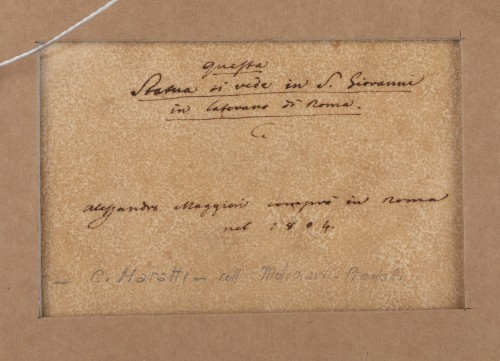 questa
Statua si vede in S. Giovanni
in Laterano di Roma.
Alessandro Maggiori comprò in Roma
nel 1804.
– C. Maratti – coll. Molinari-Pradelli